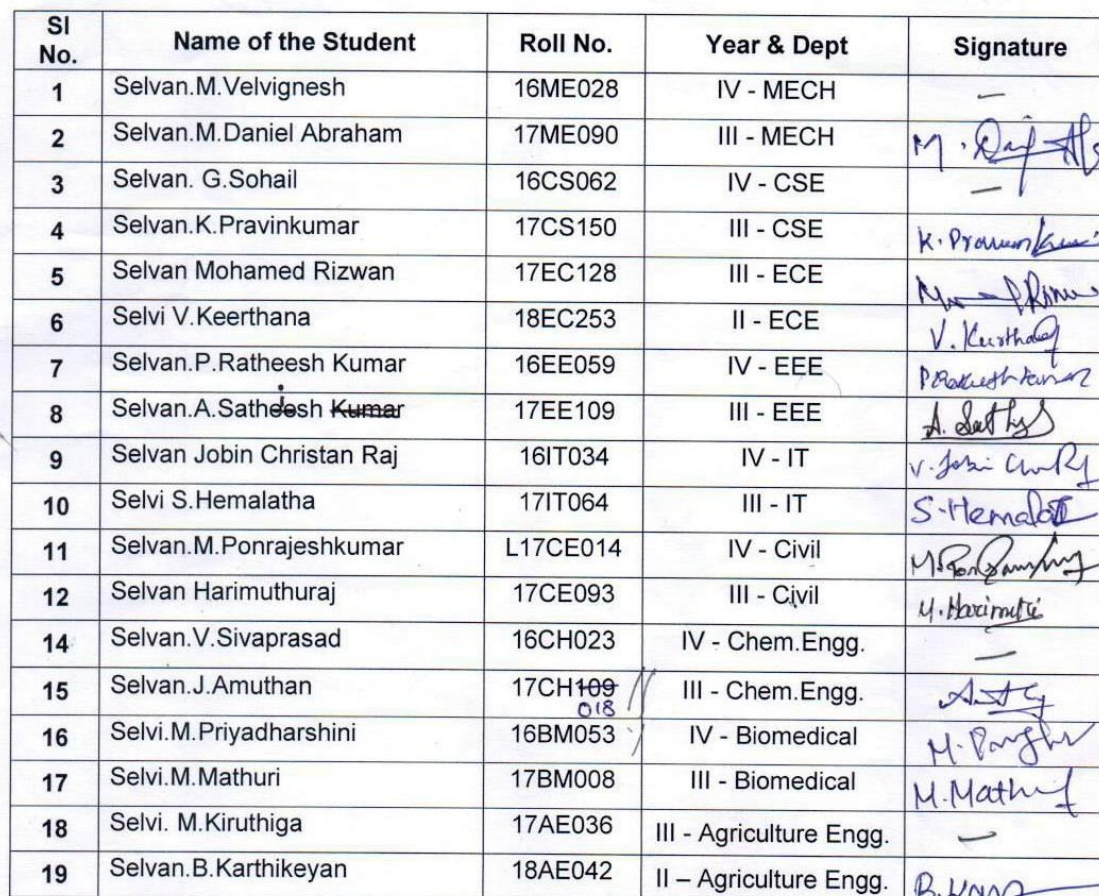 Sl No. Name of the Student Roll No. Year & Dept Signature
1 Selvan.M.Velvignesh 16ME028 IV - MECH –
2 Selvan.M.Daniel Abraham 17ME090 III - MECH M.
3 Selvan. G.Sohail 16CS062 IV - CSE –
4 Selvan.K.Pravinkumar 17CS150 III - CSE K.
5 Selvan Mohamed Rizwan 17EC128 III - ECE
6 Selvi V.Keerthana 18EC253 II - ECE V.
7 Selvan.P.Ratheesh Kumar 16EE059 IV - EEE
8 Selvan.A.Sathish Kumar 17EE109 III - EEE A.
9 Selvan Jobin Christan Raj 16IT034 IV - IT V.
10 Selvi S.Hemalatha 17IT064 III - IT S.
11 Selvan.M.Ponrajeshkumar L17CE014 IV - Civil
12 Selvan Harimuthuraj 17CE093 III - Civil
14 Selvan.V.Sivaprasad 16CH023 IV - Chem.Engg. –
15 Selvan.J.Amuthan 17CH109 III - Chem.Engg.
018
16 Selvi.M.Priyadharshini 16BM053 IV - Biomedical M.
17 Selvi.M.Mathuri 17BM008 III - Biomedical M.
18 Selvi. M.Kiruthiga 17AE036 III - Agriculture Engg. –
19 Selvan.B.Karthikeyan 18AE042 II – Agriculture Engg. B.